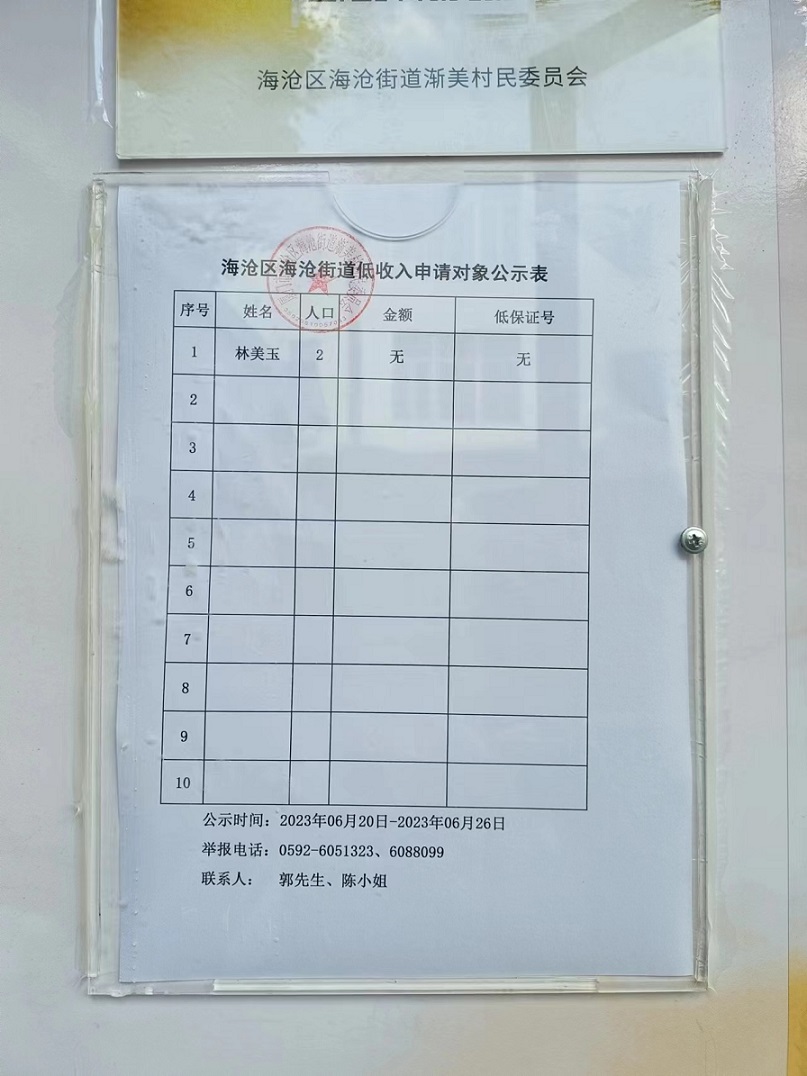 海沧区海沧街道渐美村民委员会
海沧区海沧街道低收入申请对象公示表
序号 姓名 人口 金额 低保证号
1 林美玉 2 无 无
2
3
4
5
6
7
8
9
10
公示时间：2023年06月20日-2023年06月26日
举报电话：0592-6051323、6088099
联系人： 郭先生、陈小姐